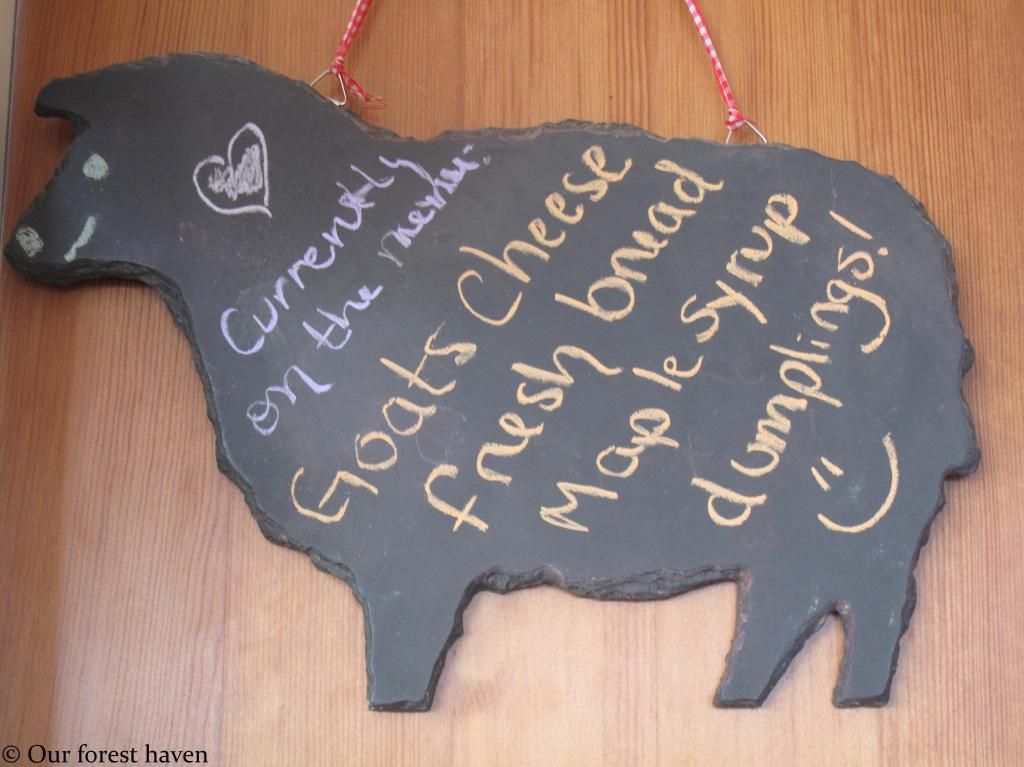 Currently
on the menu:
Goats Cheese
fresh bread
Maple syrup
dumplings!
© Our forest haven